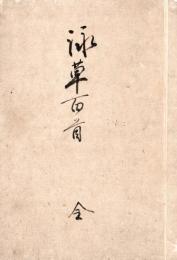 詠草百首
全